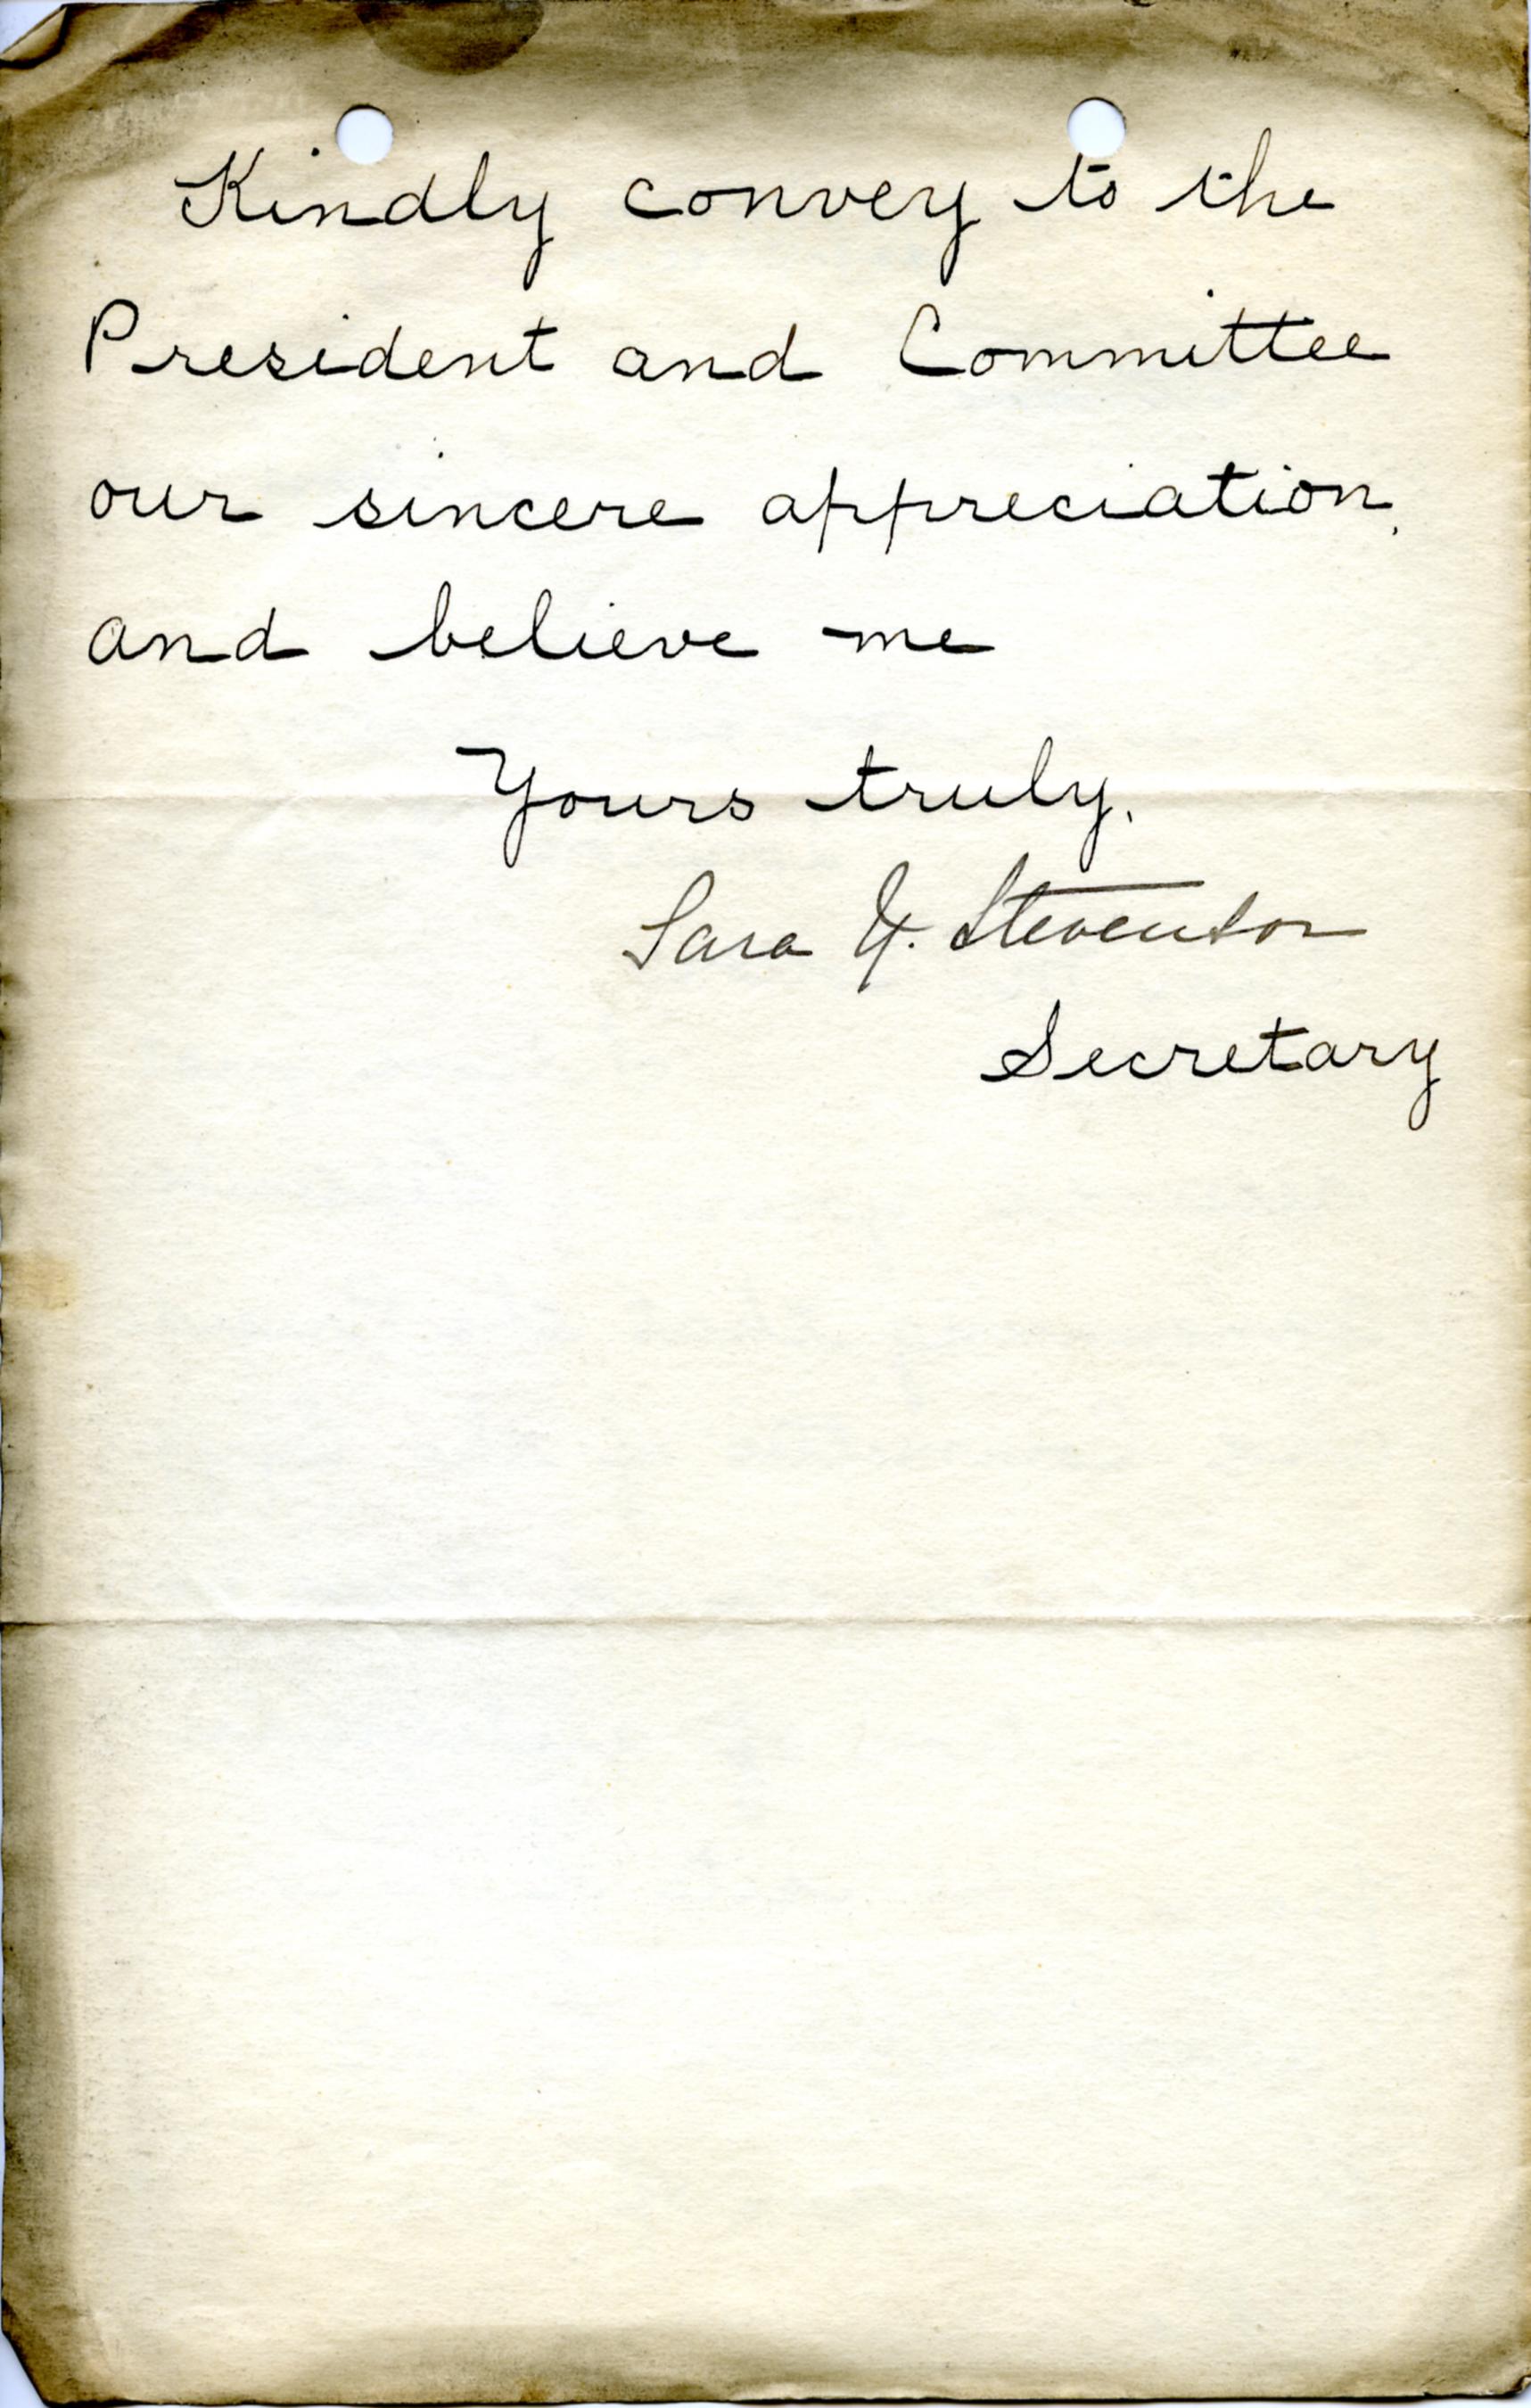 Kindly convey to the
President and Committee
our sincere appreciation,
and believe me
Yours truly,
Sara Y. Stevenson
Secretary